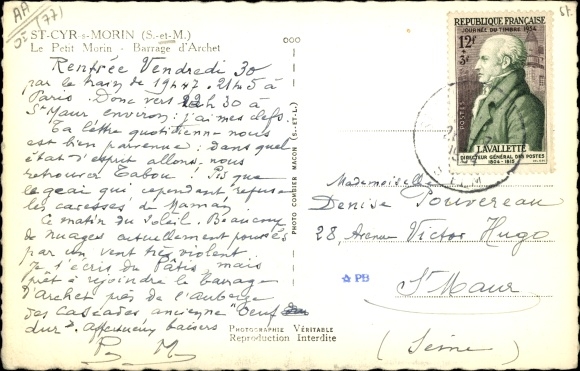 AA
JS (77)
ST-CYR-s-MORIN (S.-et-M.)
Le Petit Morin - Barrage d'Archet
Rentrée Vendredi 30
par le train de 19h47. 21h5 à
Paris. Donc vers 22h30 à
St Maur environ; j'ai mes clefs.
Ta lettre quotidienne nous
est bien parvenue: dans quel
état d'esprit allons-nous
retrouver Cabou: Pis que
le geai qui cependant refuse
les caresses de Maman.
Ce matin du Soleil. Beaucoup
de nuages actuellement poussés
par un vent très violent
Je t'écris du Pâtis, mais
prêt à rejoindre le barrage
d'archet près de l'auberge
des Cascades ancienne "Oeuf
dur". Affectueux baisers
P M
PHOTO COMBIER MACON (S.-ET-L.)
PHOTOGRAPHIE VÉRITABLE
Reproduction Interdite
RÉPUBLIQUE FRANÇAISE
JOURNÉE DU TIMBRE 1954
12f
+3f
POSTES
LAVALLETTE
DIRECTEUR GÉNÉRAL DES POSTES
1804-1815
Mademoiselle
Denise Pouvereau
28, Avenue Victor Hugo
St Maur
(Seine)
PB